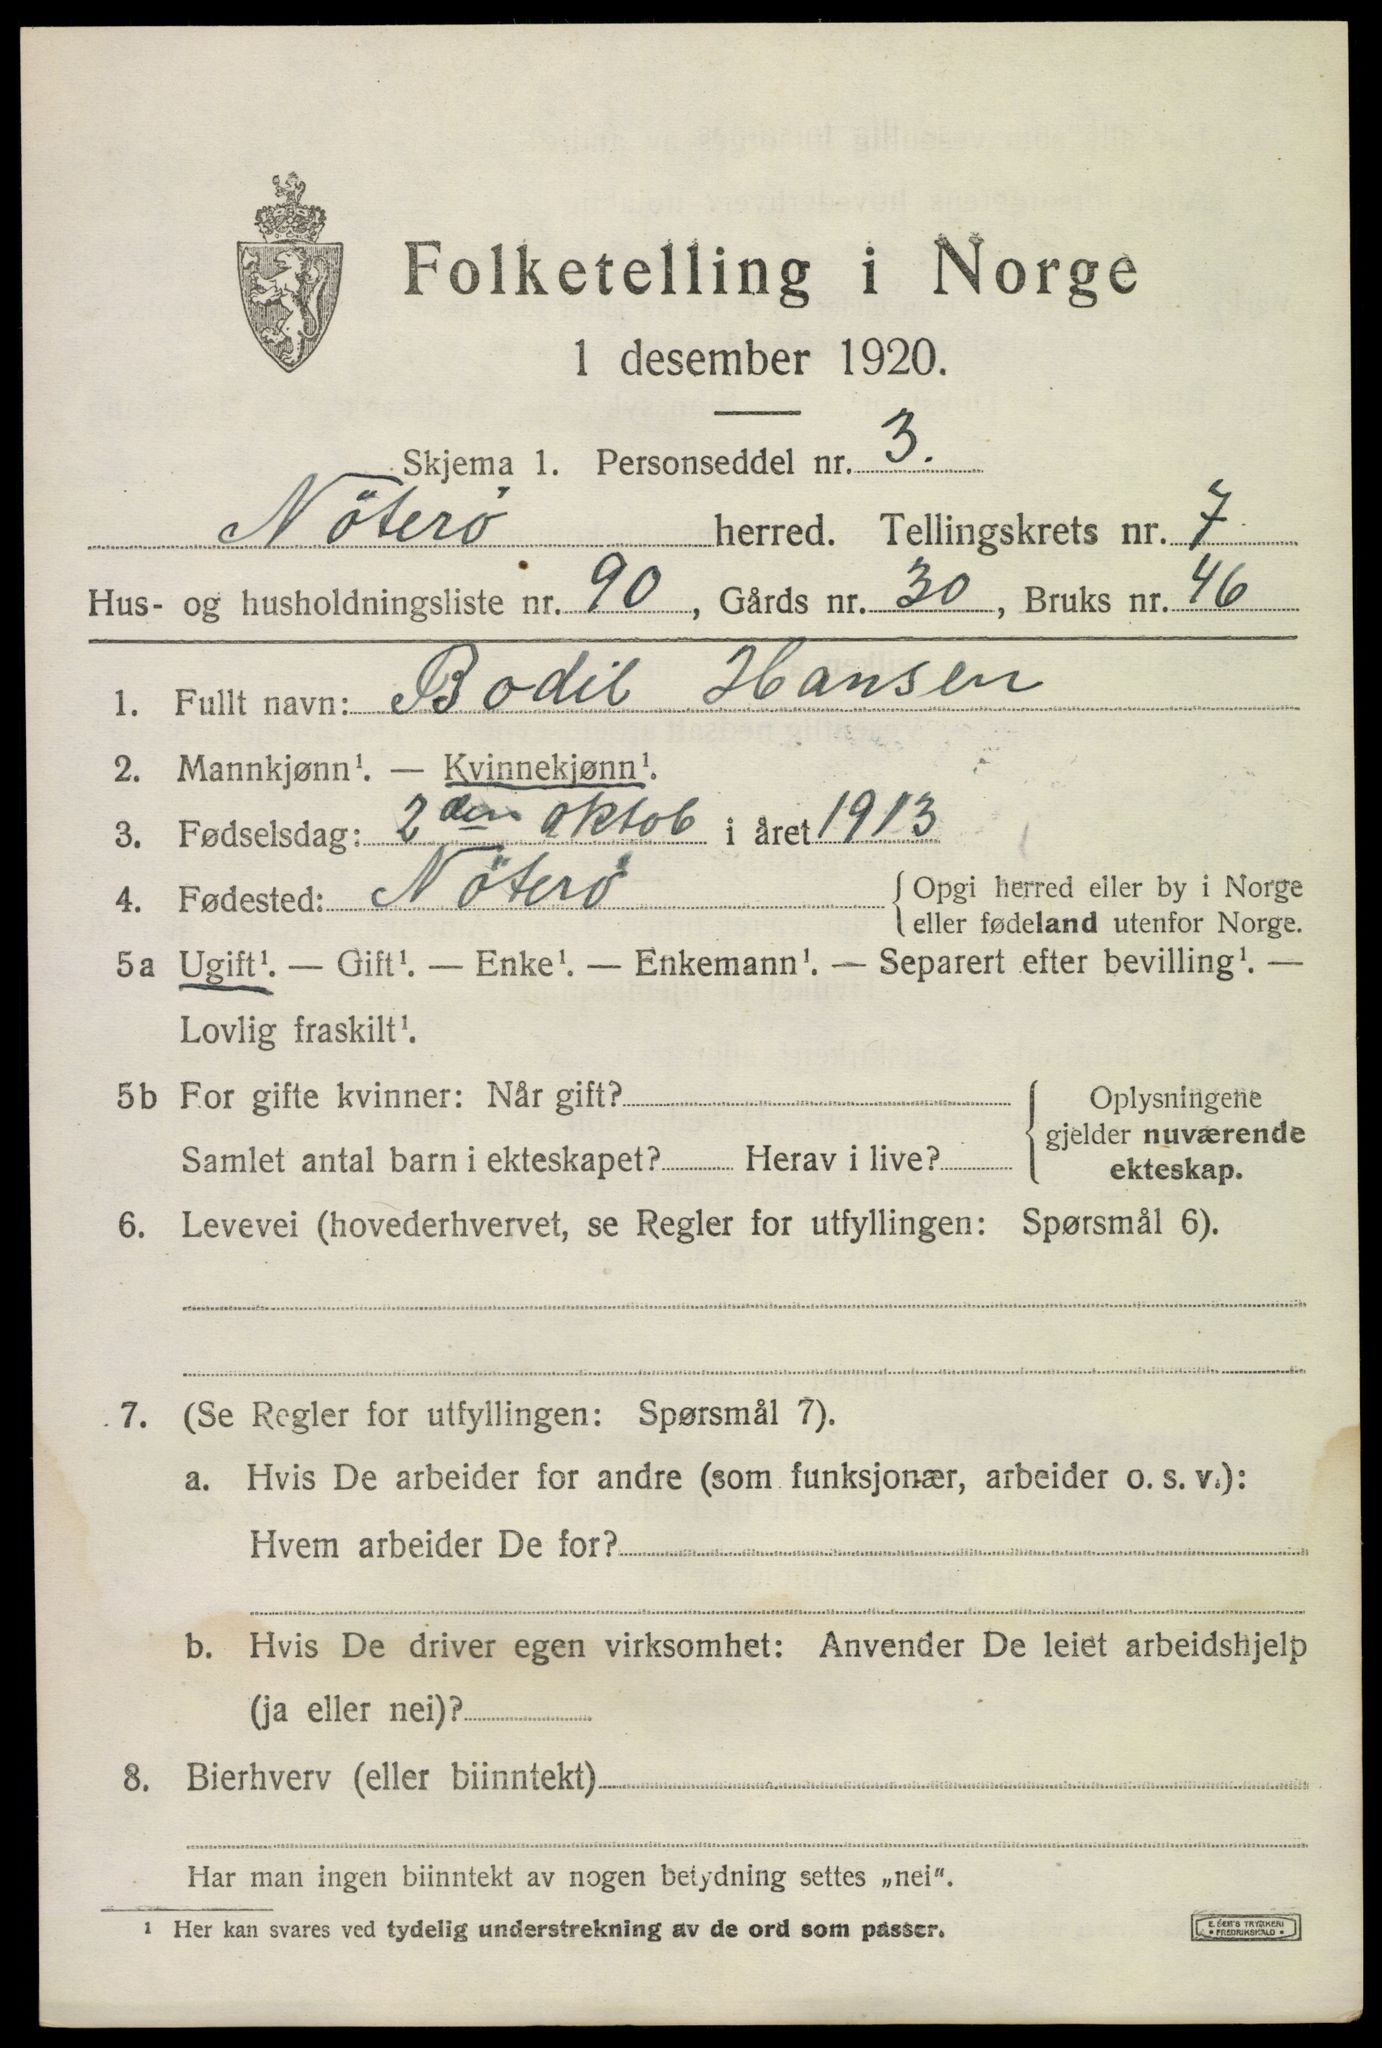 Folketelling i Norge
1 desember 1920.
Skjema 1. Personseddel nr. 3.
Nöterö herred. Tellingskrets nr. 7
Hus- og husholdningsliste nr. 90, Gårds nr. 30, Bruks nr. 46
1. Fullt navn: Bodil Hansen
2. Mannkjønn¹. — Kvinnekjønn¹.
3. Fødselsdag: 2den oktob i året 1913
4. Fødested: Nöterö { Opgi herred eller by i Norge
eller fødeland utenfor Norge.
5a Ugift¹. — Gift¹. — Enke¹. — Enkemann¹. — Separert efter bevilling¹. —
Lovlig fraskilt¹.
5b For gifte kvinner: Når gift?
Samlet antal barn i ekteskapet? Herav i live?
Oplysningene
gjelder nuværende
ekteskap.
6. Levevei (hovederhvervet, se Regler for utfyllingen: Spørsmål 6).
7. (Se Regler for utfyllingen: Spørsmål 7).
a. Hvis De arbeider for andre (som funksjonær, arbeider o. s. v.):
Hvem arbeider De for?
b. Hvis De driver egen virksomhet: Anvender De leiet arbeidshjelp
(ja eller nei)?
8. Bierhverv (eller biinntekt)
Har man ingen biinntekt av nogen betydning settes „nei“.
¹ Her kan svares ved tydelig understrekning av de ord som passer.
E. SEM'S TRYKKERI
FREDRIKSHALD